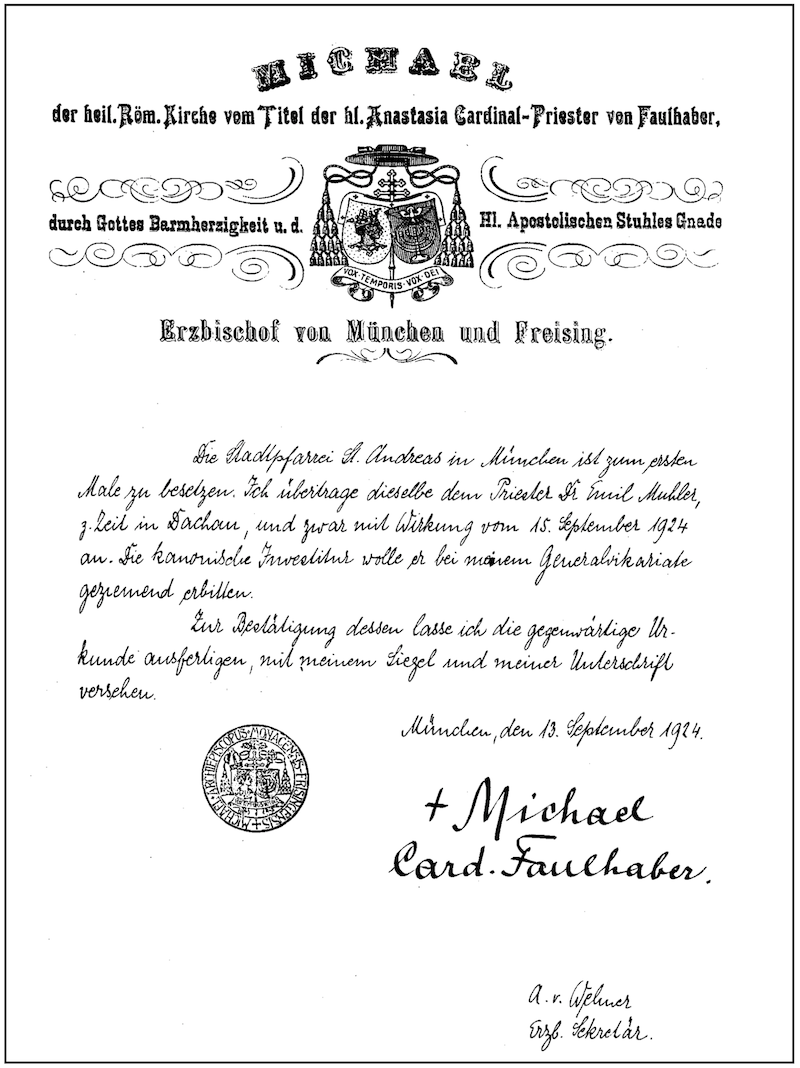 MICHAEL
der heil. Röm. Kirche vom Titel der hl. Anastasia Cardinal-Priester von Faulhaber,
durch Gottes Barmherzigkeit u. d. Hl. Apostolischen Stuhles Gnade
VOX·TEMPORIS·VOX·DEI
Erzbischof von München und Freising.
Die Stadtpfarrei St. Andreas in München ist zum ersten
Male zu besetzen. Ich übertrage dieselbe dem Priester Dr Emil Muhler,
z. Zeit in Dachau, und zwar mit Wirkung vom 15. September 1924
an. Die kanonische Investitur wolle er bei meinem Generalvikariate
geziemend erbitten.
Zur Bestätigung dessen lasse ich die gegenwärtige Ur-
kunde ausfertigen, mit meinem Siegel und meiner Unterschrift
versehen.
München, den 13. September 1924.
MICHAEL·ARCHIEPISCOPUS·MONACENSIS·FRISINGENSIS
+ Michael
Card. Faulhaber.
A. v.
Erzb. Sekretär.